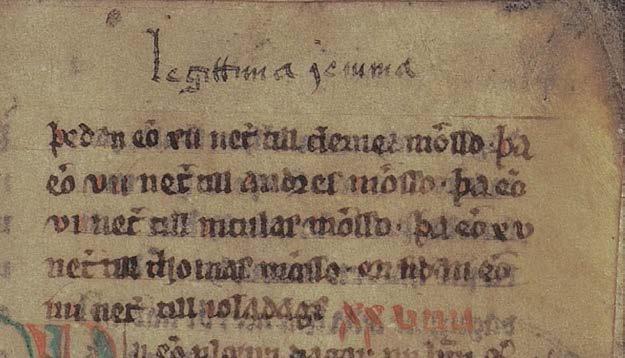 legittima jeiunia
þedan eō xii net̄ till clemet mōsso · þa
eō vii net̄ till andres mōsso · þa eō
vi net̄ till niculas mōsso · þa eō xv
net̄ till thomas mōsso · en siþan eō
iiii net̄ till ioladags